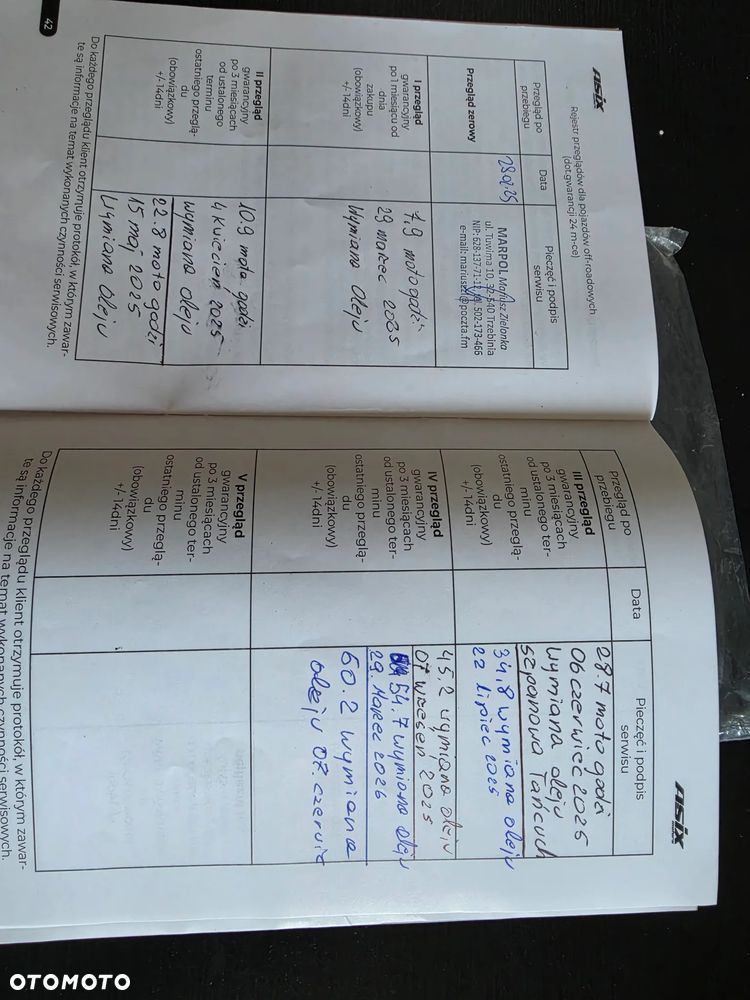 Asix
Rejestr przeglądów dla pojazdów off-roadowych
(dot.gwarancji 24 m-ce)
Przegląd po
przebiegu
Data
Pieczęć i podpis
serwisu
Przegląd zerowy
28.02.25
MARPOL Mariusz Zielonka
ul. Tuwima 10, 32-540 Trzebinia
502-173-466
I przegląd
gwarancyjny
po 1 miesiącu od
dnia
zakupu
(obowiązkowy)
+/- 14dni
7.9 motogodź
29 marzec 2025
Wymiana Oleju
II przegląd
gwarancyjny
po 3 miesiącach
od ustalonego
terminu
ostatniego przeglą-
du
(obowiązkowy)
+/- 14dni
10.9 moto godź
4 kwiecień 2025
wymiana oleju
22.8 moto godź
15 maj 2025
Wymiana Oleju
Do każdego przeglądu klient otrzymuje protokół, w którym zawar-
te są informacje na temat wykonanych czynności serwisowych.
42
Asix
Przegląd po
przebiegu
Data
Pieczęć i podpis
serwisu
III przegląd
gwarancyjny
po 3 miesiącach
od ustalonego ter-
minu
ostatniego przeglą-
du
(obowiązkowy)
+/- 14dni
28.7 motogodź
06 czerwieć 2025
Wymiana oleju
szpanowa Tańcuch
34.8 wymiana oleju
22 lipiec 2025
IV przegląd
gwarancyjny
po 3 miesiącach
od ustalonego ter-
minu
ostatniego przeglą-
du
(obowiązkowy)
+/- 14dni
45.2 wymiana oleju
07 wrzesień 2025
54.7 wymiana oleju
29. Marzec 2026
60.2 Wymiana
oleju 07. czerwie
V przegląd
gwarancyjny
po 3 miesiącach
od ustalonego ter-
minu
ostatniego przeglą-
du
(obowiązkowy)
+/- 14dni
Do każdego przeglądu klient otrzymuje protokół, w którym zawar-
te są informacje na temat wykonanych czynności serwisowych.
OTOMOTO